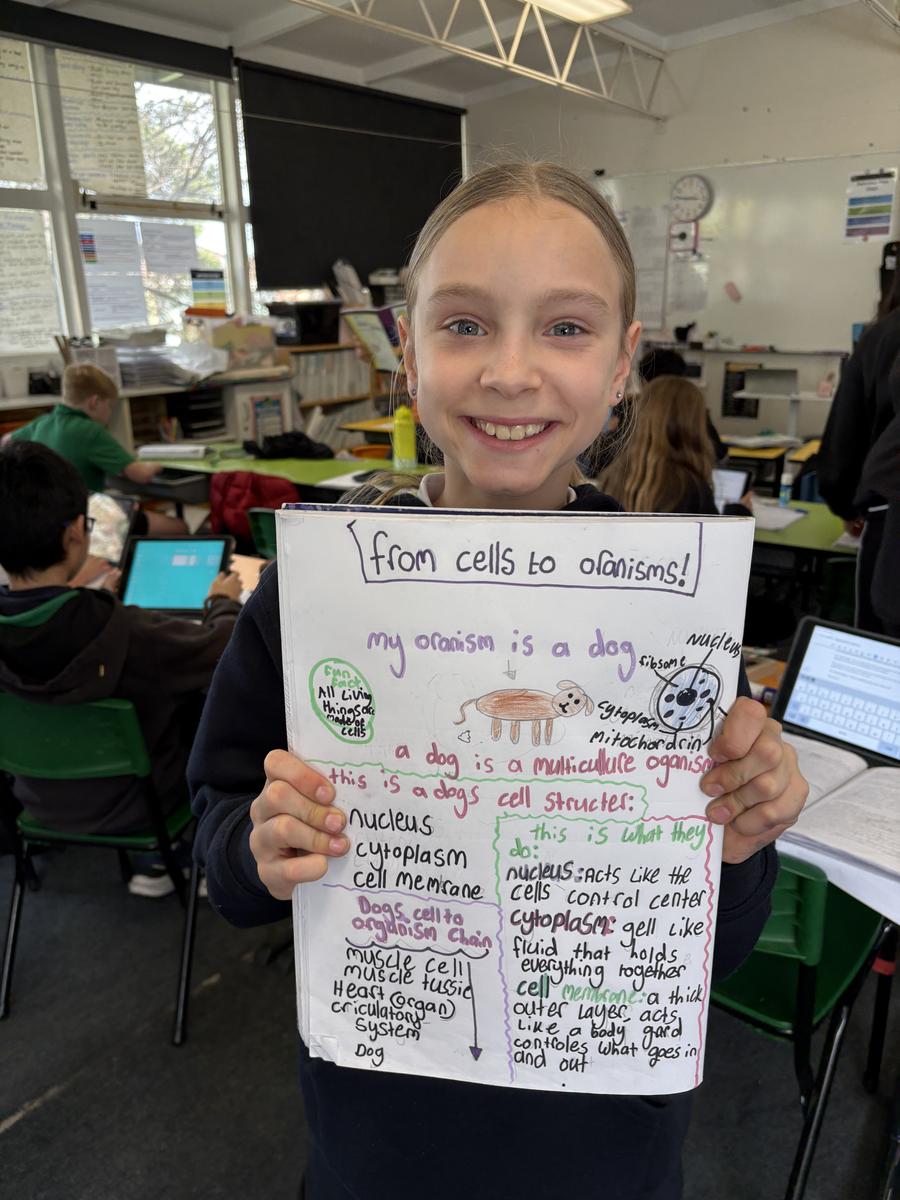 from cells to oranisms!
my oranism is a dog
fun
fact
All Living
things are
made of
cells
nucleus
ribsome
cytoplasm
mitochordrin
a dog is a multiculture oganism
this is a dogs cell structer:
nucleus
cytoplasm
cell memrane
Dogs cell to
organism chain
muscle cell
muscle tussie
Heart (organ)
criculatory
system
Dog
this is what they
do:
nucleus: Acts like the
cells control center
cytoplasm: gell like
fluid that holds
everything together
cell membrane: a thick
outer Layer, acts
Like a body gard
controles what goes in
and out